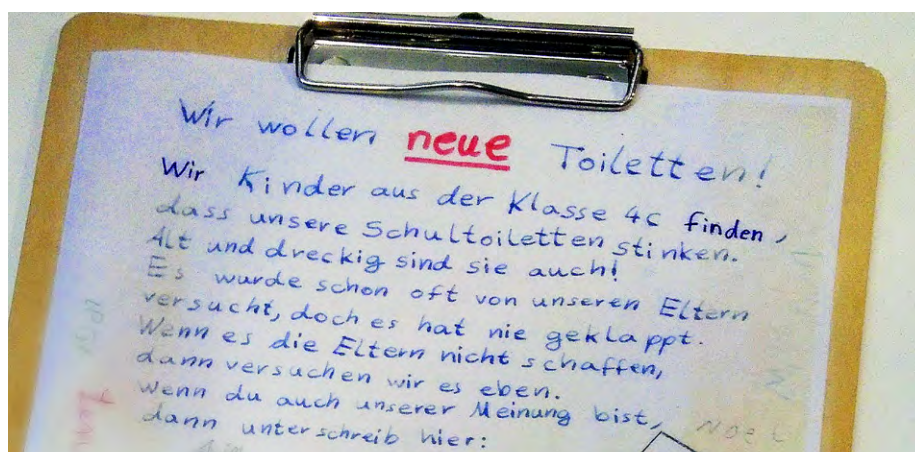 Wir wollen neue Toiletten!
Wir Kinder aus der Klasse 4c finden,
dass unsere Schultoiletten stinken.
Alt und dreckig sind sie auch!
Es wurde schon oft von unseren Eltern
versucht, doch es hat nie geklappt.
Wenn es die Eltern nicht schaffen,
dann versuchen wir es eben.
Wenn du auch unserer Meinung bist,
dann unterschreib hier: